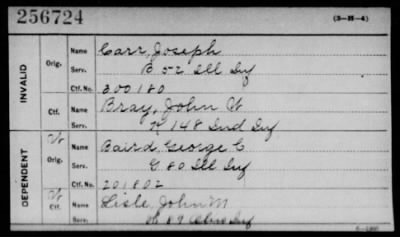 256724
(3-H-4)
INVALID
Orig.
Name Carr, Joseph
Serv. B 52 Ill Inf
Ctf. No. 300180
Ctf.
Name Bray, John W
Serv. K 148 Ind Inf
DEPENDENT
W
Orig.
Name Baird, George C
Serv. G 80 Ill Inf
Ctf. No. 201802
W
Ctf.
Name Lisle, John M
Serv. 89 Ohio Inf